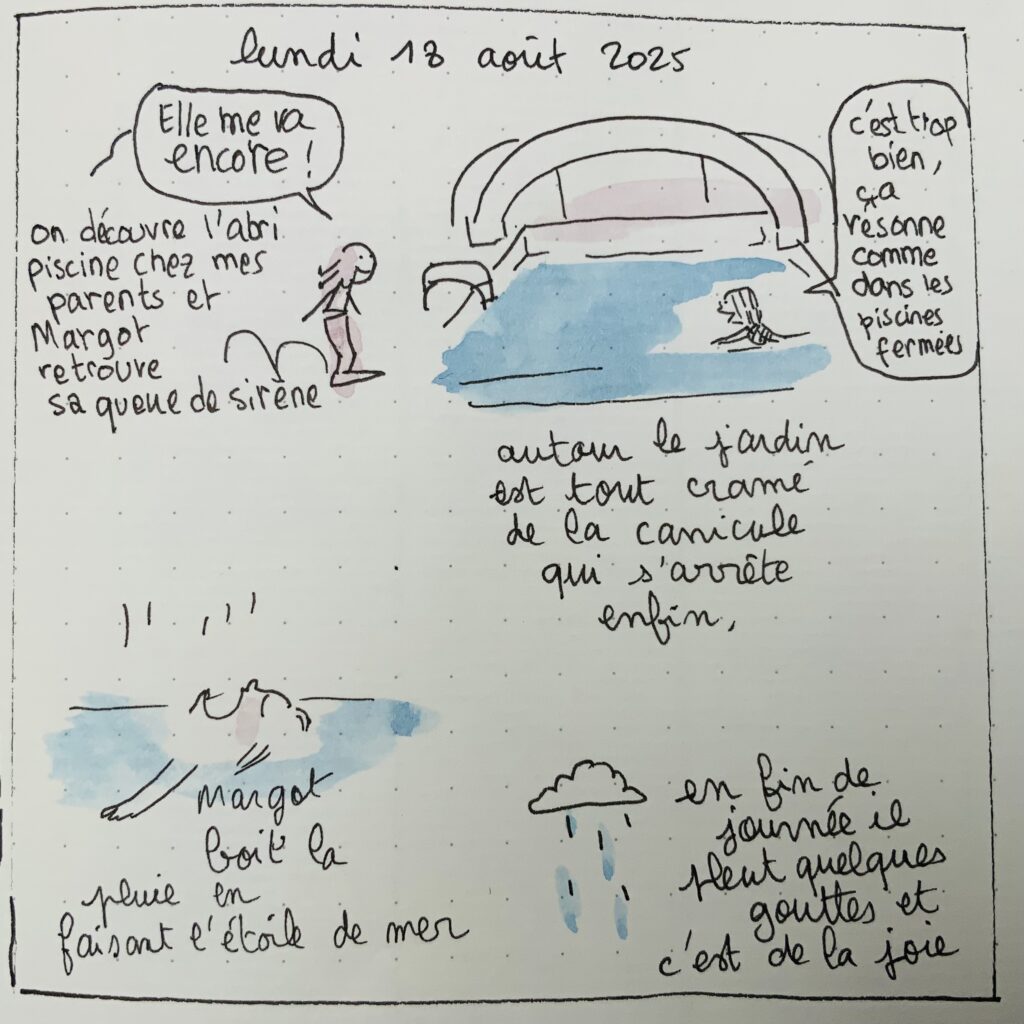 lundi 18 août 2025
Elle me va
encore !
on découvre l'abri
piscine chez mes
parents et
Margot
retrouve
sa queue de sirène
c'est trop
bien,
ça
résonne
comme
dans les
piscines
fermées
autour le jardin
est tout cramé
de la canicule
qui s'arrête
enfin,
Margot
boit la
pluie en
faisant l'étoile de mer
en fin de
journée il
pleut quelques
gouttes et
c'est de la joie